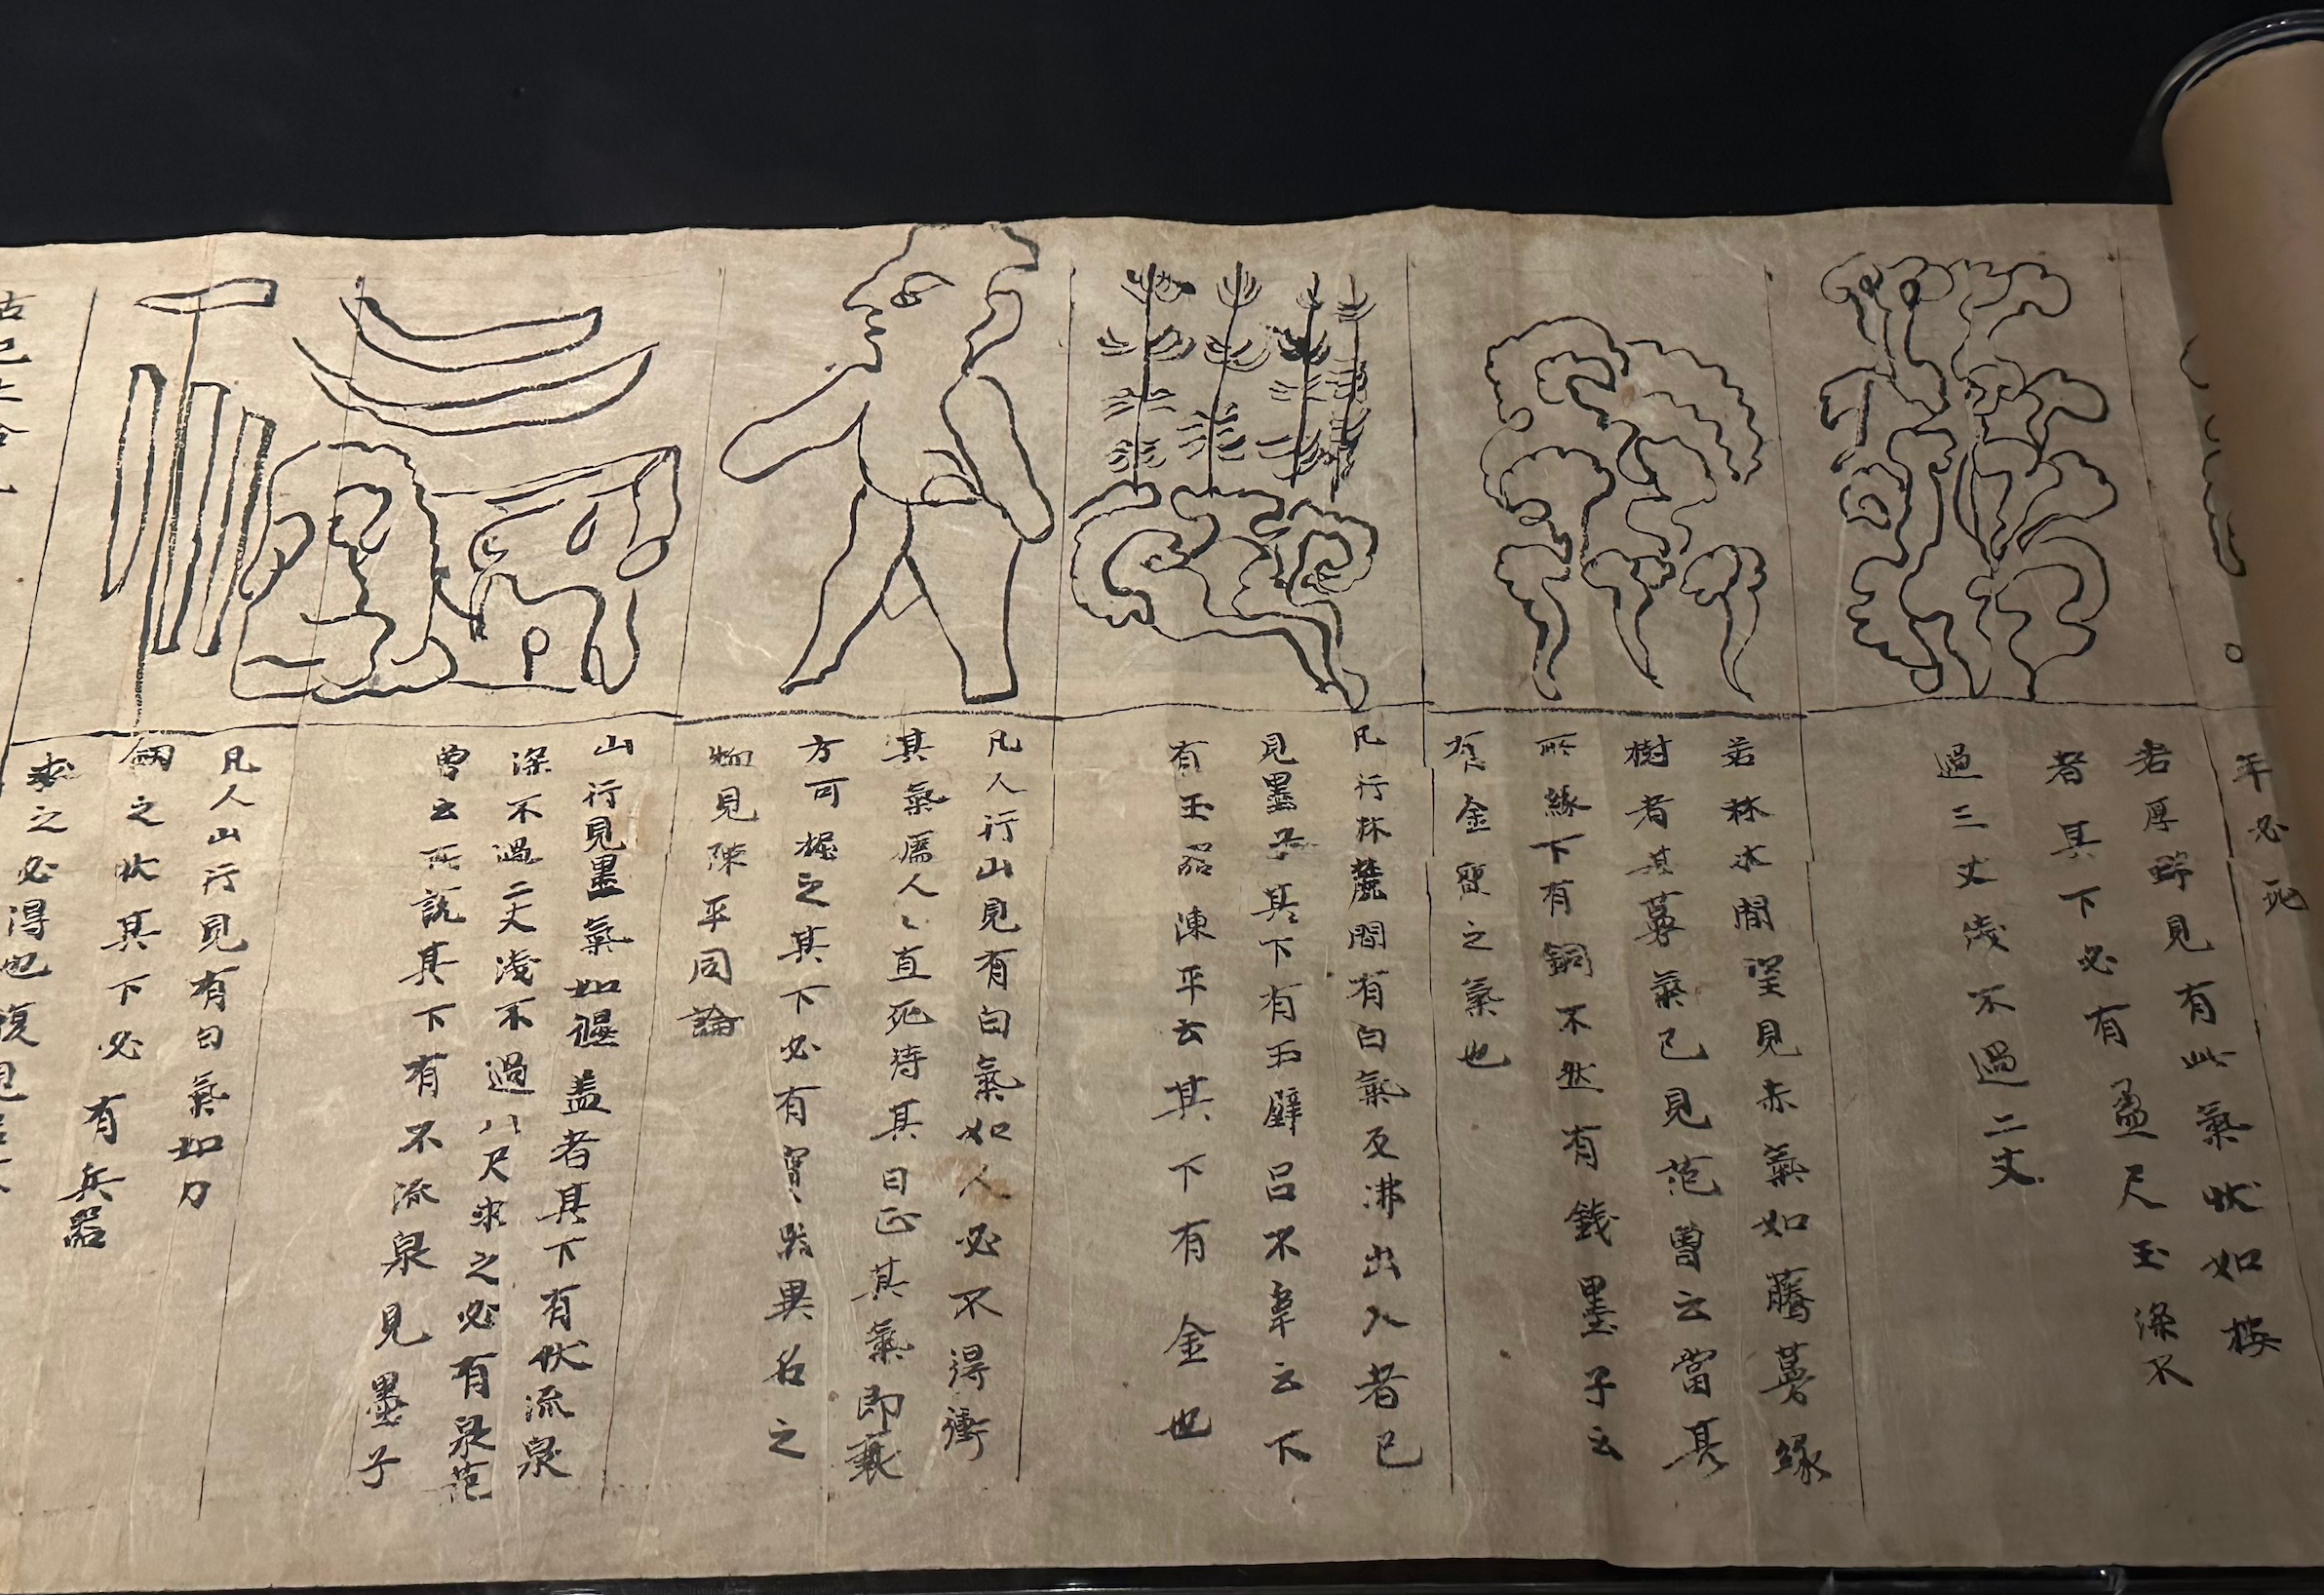 年必死
若厚野見有此氣狀如樓
者其下必有盈尺玉深不
過三丈淺不過二丈
若林木間望見赤氣如藤蔓緣
樹者其蔓氣已見范曾云當其
所緣下有銅不然有錢墨子云
有金寶之氣也
凡行林麓間有白氣反沸出入者已
見墨子其下有玉璧呂不韋云下
有玉器陳平云其下有金也
凡人行山見有白氣如人必不得衝
其氣傷人〻直死待其日正其氣即衰
方可掘之其下必有寶器異名之
物見陳平同論
山行見黑氣如偃盖者其下有伏流泉
深不過二丈淺不過八尺求之必有泉范
曾云所說其下有不流泉見墨子
凡人山行見有白氣如刀
劍之狀其下必有兵器
求之必得也復